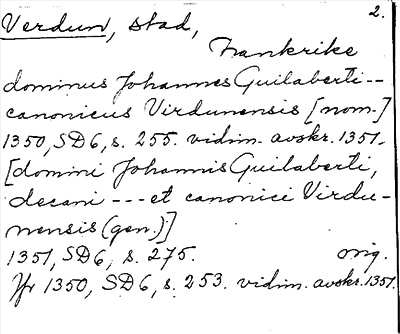 2.
Verdun, stad,
Frankrike
dominus Johannes Guilaberti --
canonicus Virdunensis [nom.]
1350, SD6, s. 255. vidim. avskr. 1351.
[domini Johannis Guilaberti,
decani --- et canonici Virdu-
nensis (gen.)]
1351, SD6, s. 275. orig.
Jfr 1350, SD6, s. 253. vidim. avskr. 1351.